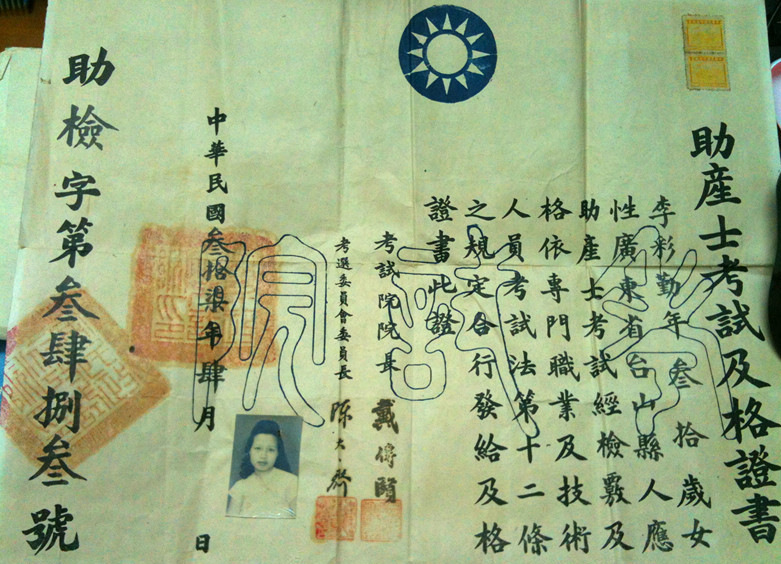 助產士考試及格證書
李彩勤年叁拾歲女
性廣東省台山縣人應
助產士考試經檢覈及
格依專門職業及技術
人員考試法第十二條
之規定合行發給及格
證書此證
考試院院長 戴傳賢
考選委員會委員長 陳大齊
中華民國叁拾柒年肆月 日
助檢字第叁肆捌叁號
考試院